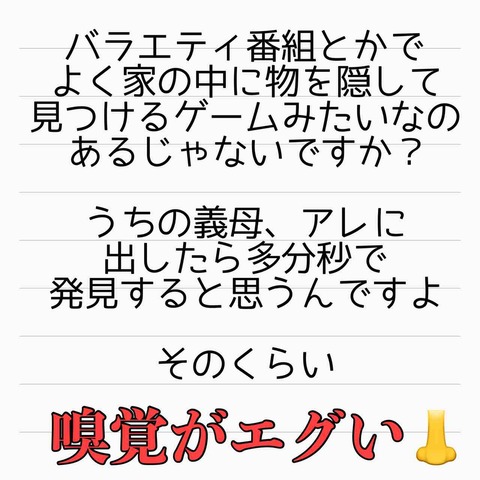 バラエティ番組とかで
よく家の中に物を隠して
見つけるゲームみたいなの
あるじゃないですか？
うちの義母、アレに
出したら多分秒で
発見すると思うんですよ
そのくらい
嗅覚がエグい👃